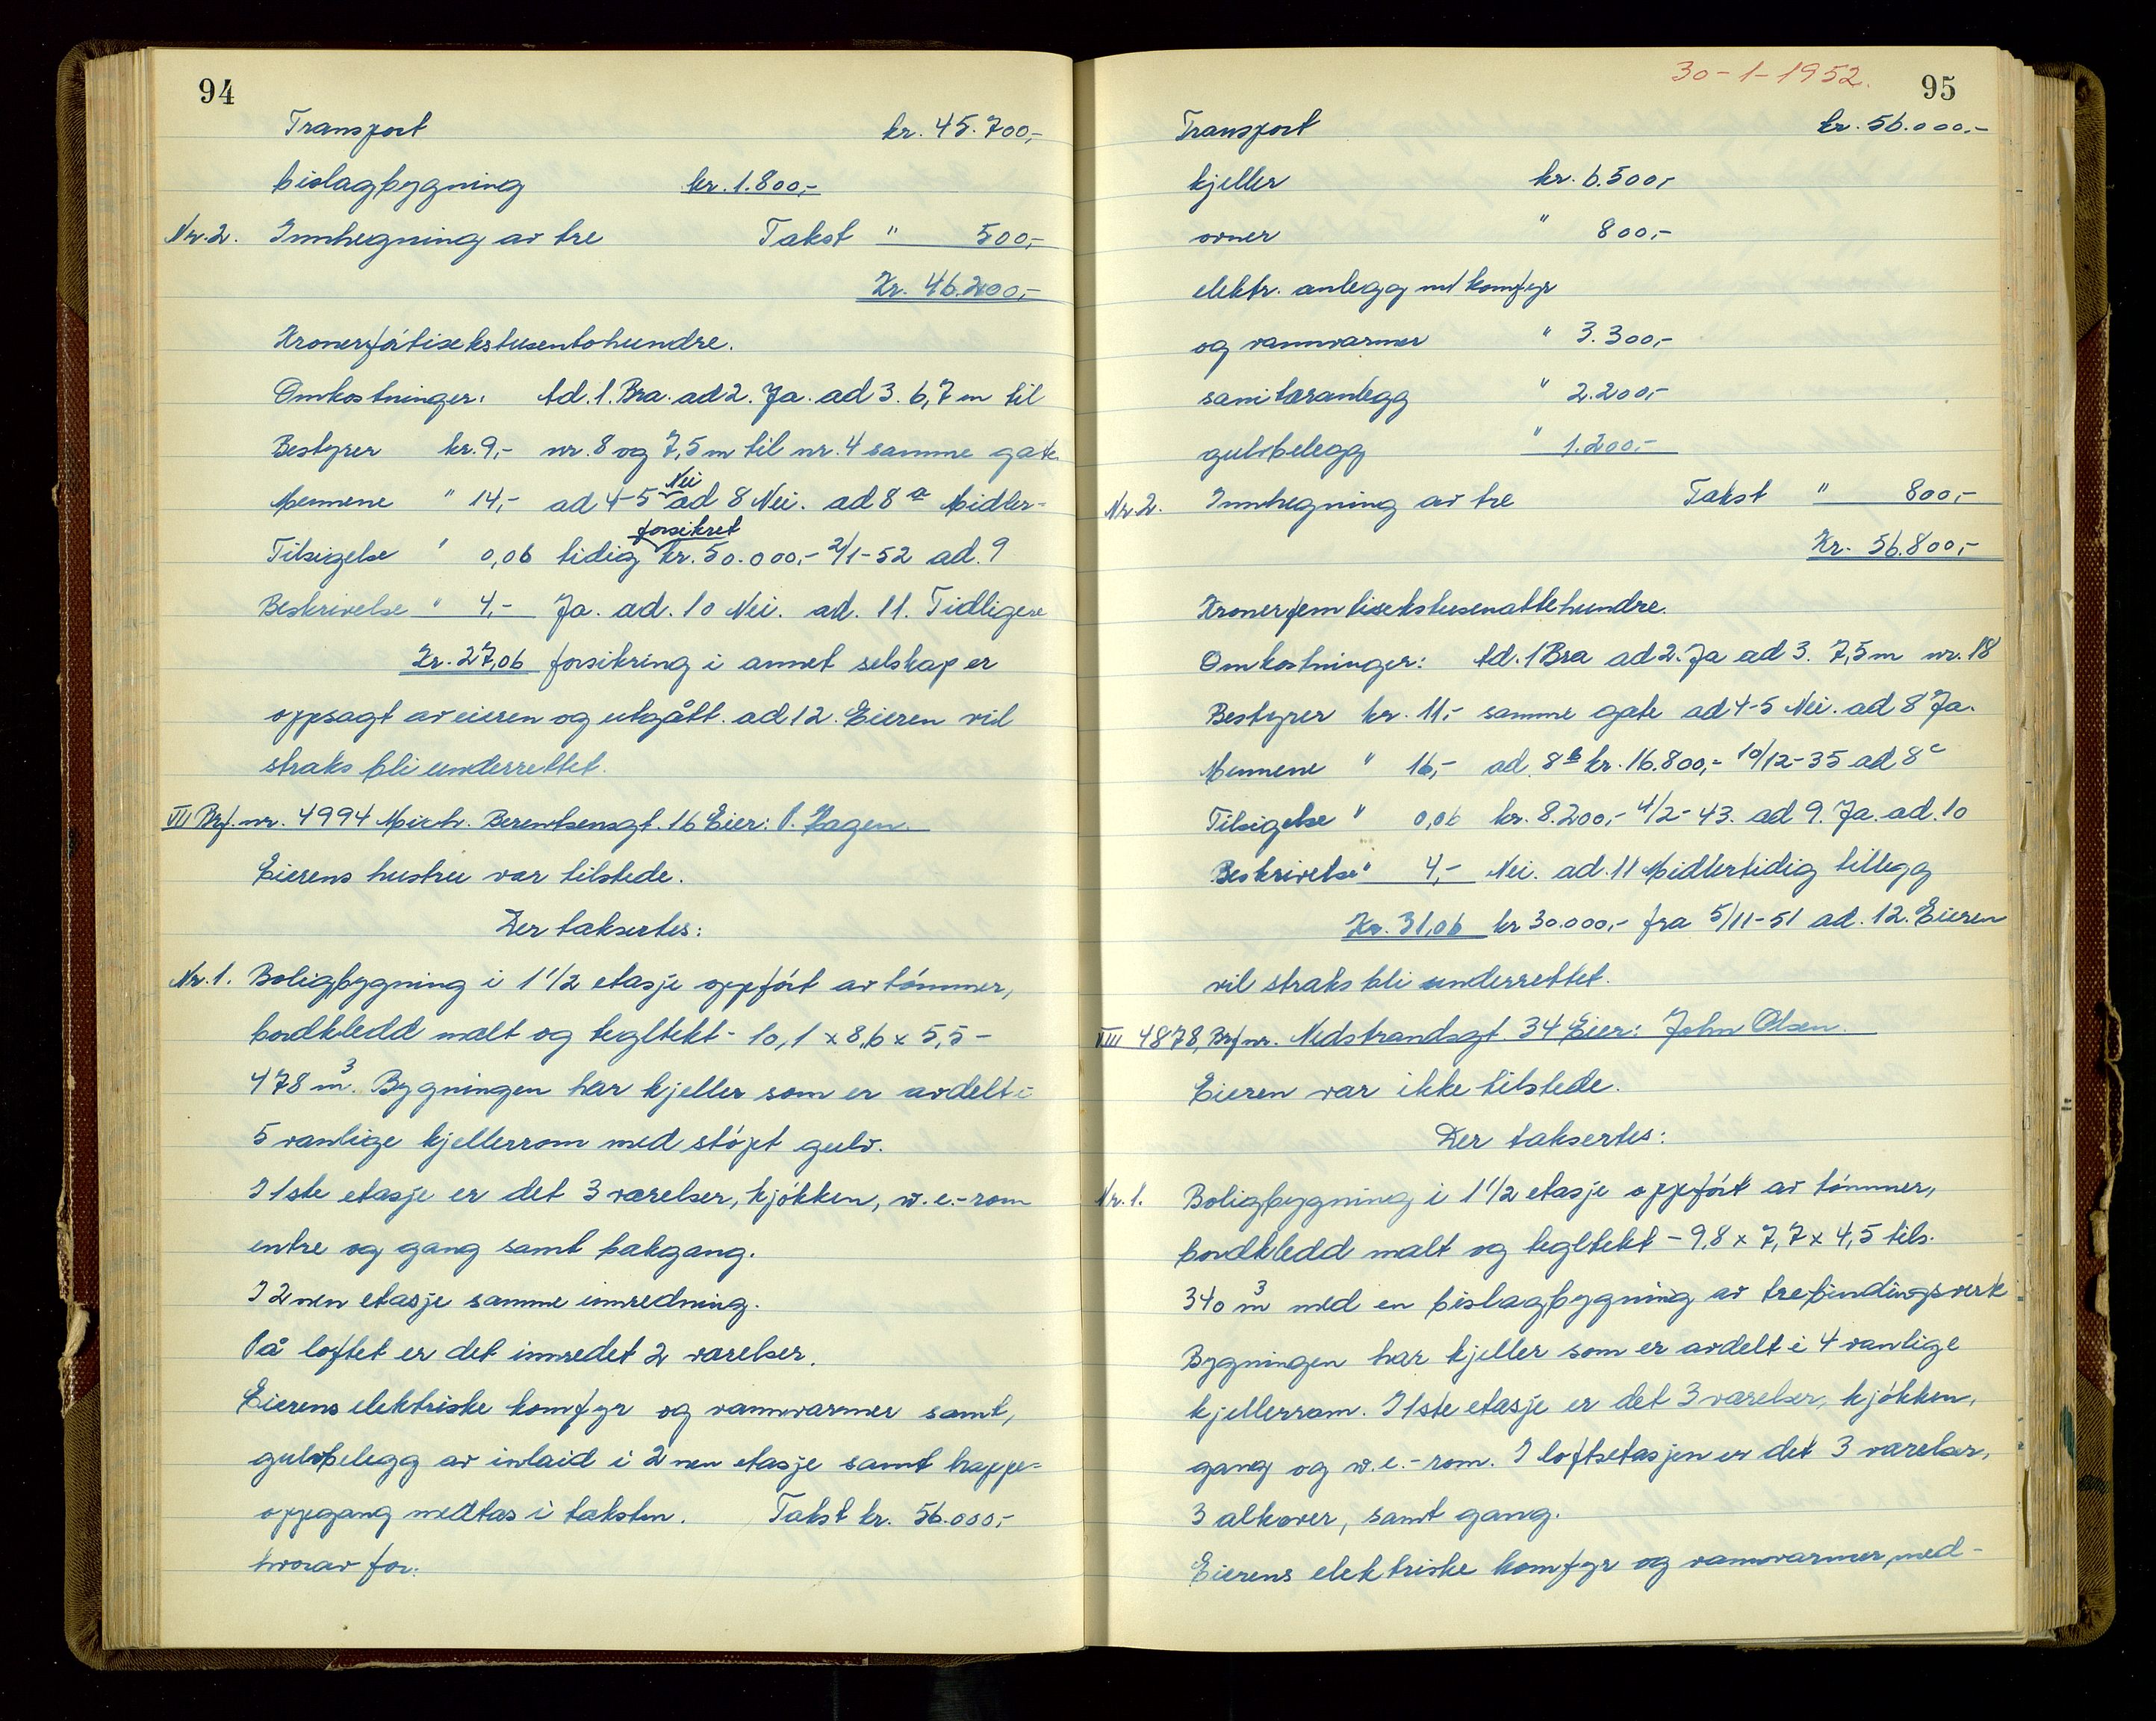 94
Transport kr. 45.700,-
bislagbygning kr. 1.800,-
Nr. 2. Innhegning av tre Takst " 500,-
Kr. 46.200,-
Kronerførtisekstusentohundre.
Omkostninger: Ad. 1. Bra. ad 2. Ja. ad 3. 6,7 m til
Bestyrer kr. 9,- nr. 8 og 7,5 m til nr. 4 samme gate.
Mennene " 14,- ad 4-5 Nei ad 8 Nei. ad 8 a Midler-
Tilsigelse " 0,06 tidig forsikret kr. 50.000,- 2/1-52 ad. 9
Beskrivelse " 4,- Ja. ad. 10 Nei. ad. 11. Tidligere
Kr. 27,06 forsikring i annet selskap er
oppsagt av eieren og utgått. ad 12. Eieren vil
straks bli underrettet.
VII Brf. nr. 4994 Mich. Berentsensgt. 16 Eier: P. Hagen.
Eierens hustru var tilstede.
Der taksertes:
Nr. 1. Boligbygning i 1 1/2 etasje oppført av tømmer,
bordkledd malt og tegltekt - 10,1 x 8,6 x 5,5 -
478 m³. Bygningen har kjeller som er avdelt i
5 vanlige kjellerrom med støpt gulv.
I 1ste etasje er det 3 værelser, kjøkken, w.c.-rom
entre og gang samt bakgang.
I 2nen etasje samme innredning.
På loftet er det innredet 2 værelser.
Eierens elektriske komfyr og vannvarmer samt,
gulvbelegg av inlaid i 2nen etasje samt trappe-
oppgang medtas i taksten. Takst kr. 56.000,-
hvorav for:
30-1-1952.
95
Transport kr. 56.000,-
kjeller kr. 6.500,-
ovner " 800,-
elektr. anlegg m/ komfyr
og vannvarmer " 3.300,-
sanitæranlegg " 2.200,-
gulvbelegg " 1.200,-
Nr. 2. Innhegning av tre Takst " 800,-
Kr. 56.800,-
Kronerfemtisekstusenåttehundre.
Omkostninger: Ad. 1 Bra ad 2. Ja ad 3. 7,5 m nr. 18
Bestyrer kr. 11,- samme gate ad 4-5 Nei. ad 8 Ja.
Mennene " 16,- ad. 8 b kr. 16.800,- 10/12-35 ad 8 c
Tilsigelse " 0,06 kr. 8.200,- 4/2-43. ad 9. Ja. ad. 10
Beskrivelse " 4,- Nei. ad. 11 Midlertidig tillegg
Kr. 31,06 kr 30.000,- fra 5/11-51 ad. 12. Eieren
vil straks bli underrettet.
VIII 4878, Brf nr. Nedstrandsgt. 34 Eier: John Olsen.
Eieren var ikke tilstede.
Der taksertes:
Nr. 1. Boligbygning i 1 1/2 etasje oppført av tømmer,
bordkledd malt og tegltekt - 9,8 x 7,7 x 4,5 tils.
340 m³ med en bislagbygning av trebindingsverk
Bygningen har kjeller som er avdelt i 4 vanlige
kjellerrom. I 1ste etasje er det 3 værelser, kjøkken,
gang og w.c.-rom. I loftsetasjen er det 3 værelser,
3 alkover, samt gang.
Eierens elektriske komfyr og vannvarmer, med-